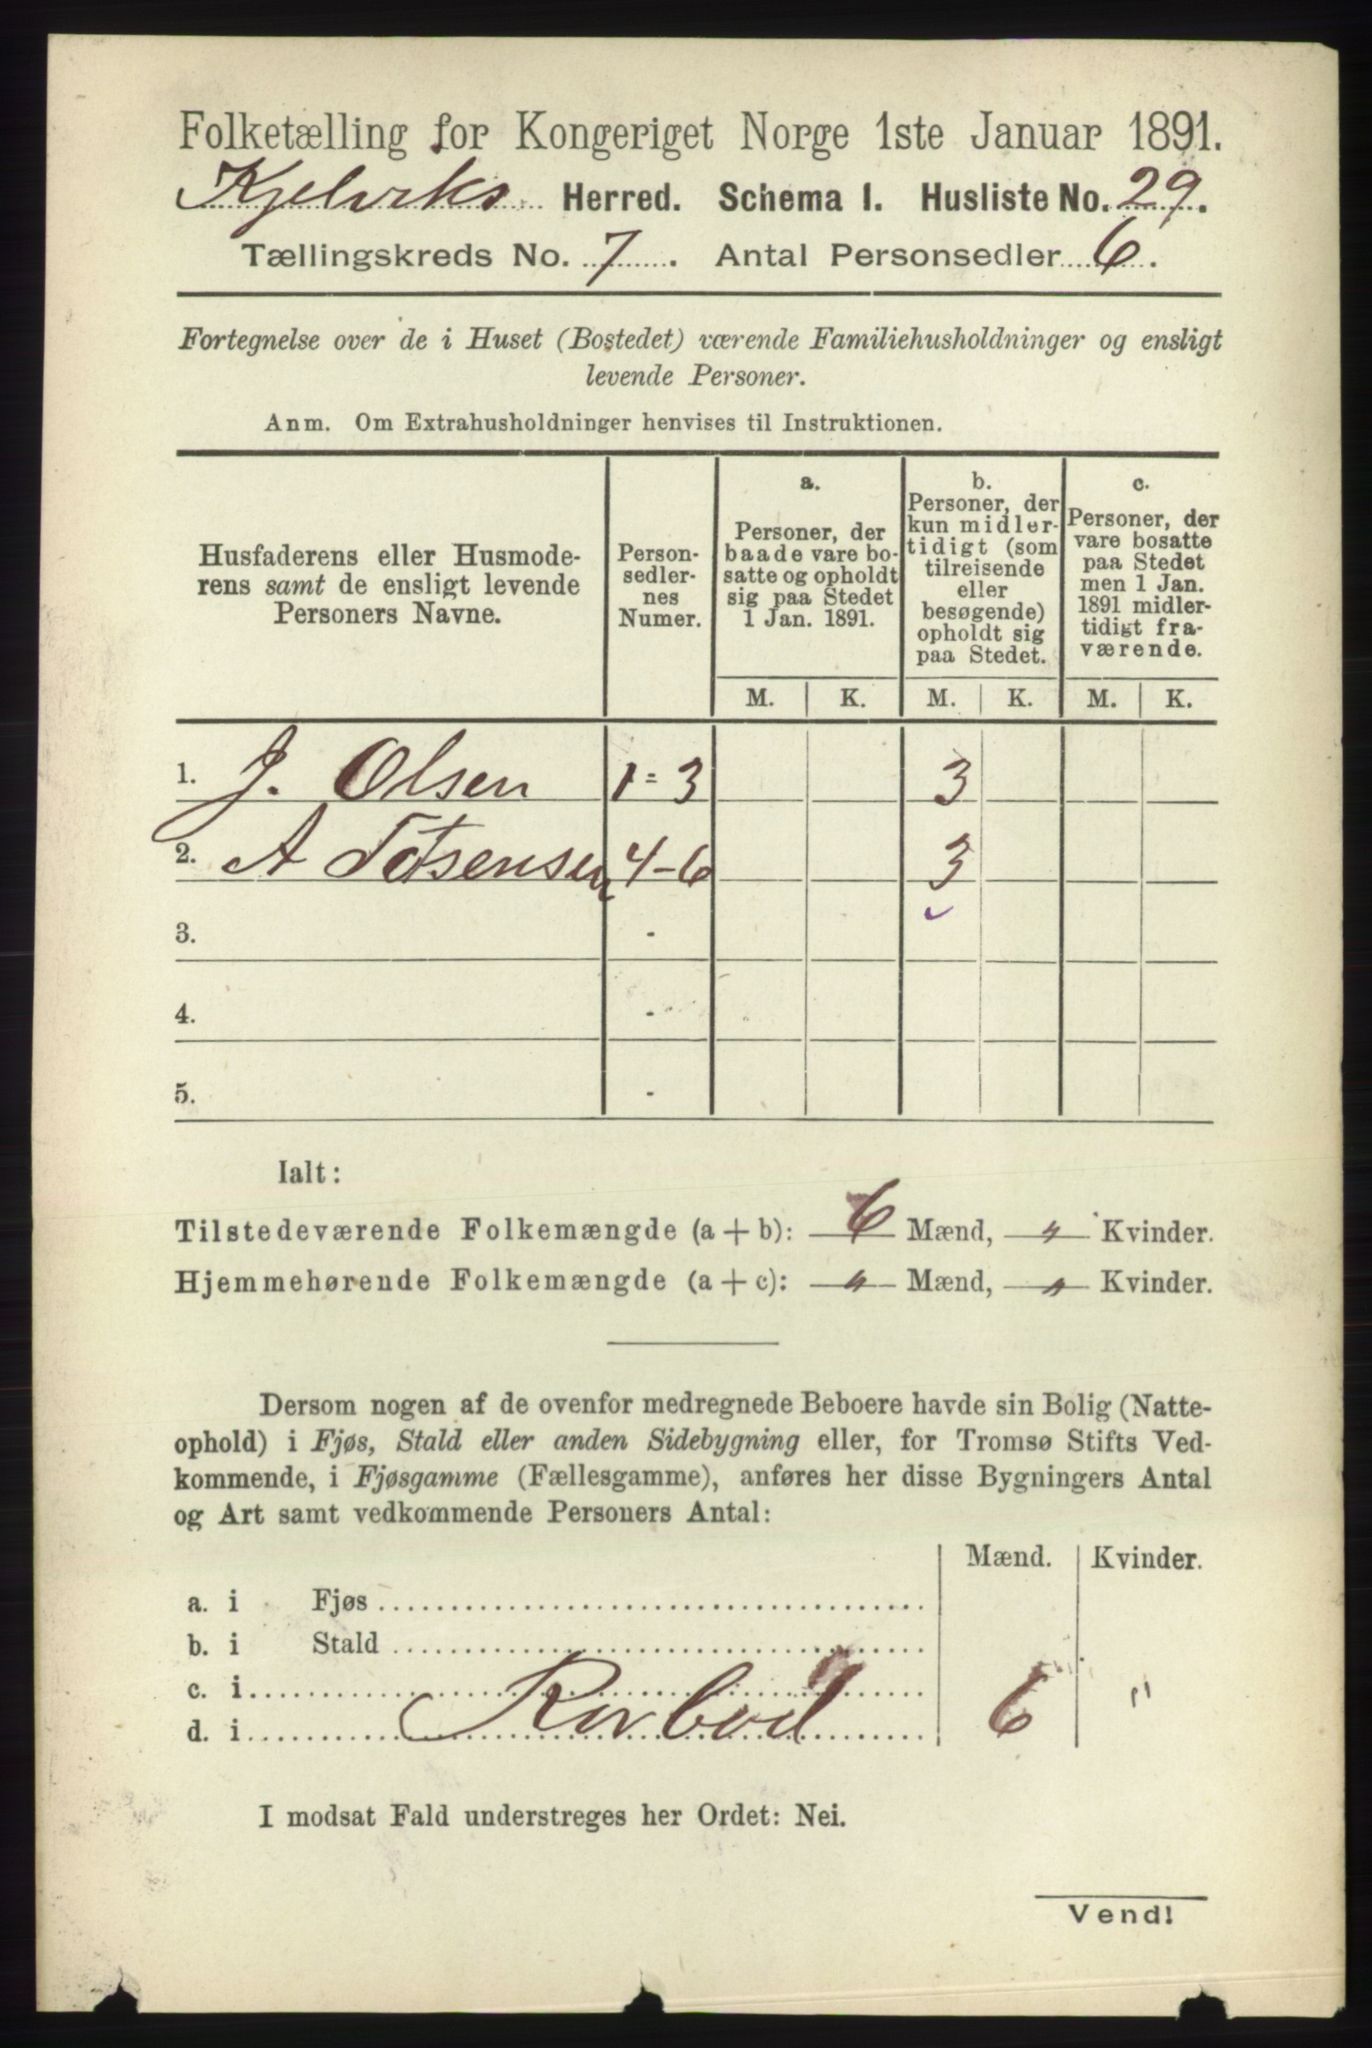 Folketælling for Kongeriget Norge 1ste Januar 1891.
Kjelviks Herred. Schema I. Husliste No. 29.
Tællingskreds No. 7. Antal Personsedler 6.
Fortegnelse over de i Huset (Bostedet) værende Familiehusholdninger og ensligt
levende Personer.
Anm. Om Extrahusholdninger henvises til Instruktionen.
Husfaderens eller Husmode-
rens samt de ensligt levende
Personers Navne.
Person-
sedler-
nes
Numer.
a.
Personer, der
baade vare bo-
satte og opholdt
sig paa Stedet
1 Jan. 1891.
b.
Personer, der
kun midler-
tidigt (som
tilreisende
eller
besøgende)
opholdt sig
paa Stedet.
c.
Personer, der
vare bosatte
paa Stedet
men 1 Jan.
1891 midler-
tidigt fra-
værende.
M. K. M. K. M. K.
1. J. Olsen 1 = 3 3
2. A 4-6 3
3. -
4. -
5. -
Ialt:
Tilstedeværende Folkemængde (a + b): 6 Mænd, " Kvinder.
Hjemmehørende Folkemængde (a + c): " Mænd, " Kvinder.
Dersom nogen af de ovenfor medregnede Beboere havde sin Bolig (Natte-
ophold) i Fjøs, Stald eller anden Sidebygning eller, for Tromsø Stifts Ved-
kommende, i Fjøsgamme (Fællesgamme), anføres her disse Bygningers Antal
og Art samt vedkommende Personers Antal:
Mænd. Kvinder.
a. i Fjøs
b. i Stald
c. i
d. i Rorbod 6 "
I modsat Fald understreges her Ordet: Nei.
Vend!